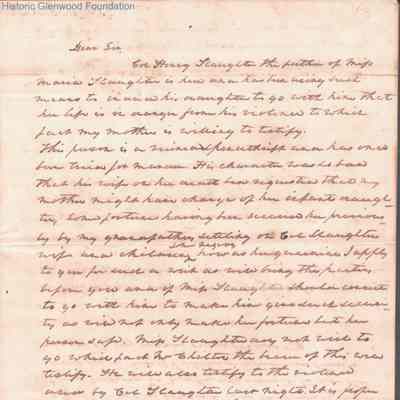 Historic Glenwood Foundation
Dear Sir
Col Henry Slaughter the father of Miss
Maria Slaughter is here and has been using such
means to induce his daughter to go with him that
her life is in danger from his violence to which
fact my mother is willing to testify.
This person is a ruined spendthrift and has once
been tried for murder. His character was so bad
that his wife on her death bed requested that my
mother might have charge of her infant daugh-
ter, some fortune having been secured her previous-
ly by my grandfather settling on Col Slaughter
wife and children, his negroes. I apply
to you for such a writ as will bring the parties
before you and if Miss Slaughter should consent
to go with him to make him give such securi-
ty as will not only make her fortune but her
person safe. Miss Slaughter does not wish to
go which fact Mr Chilton the bearer of this will
testify. He will also testify to the violence
used by Col Slaughter last night. It is